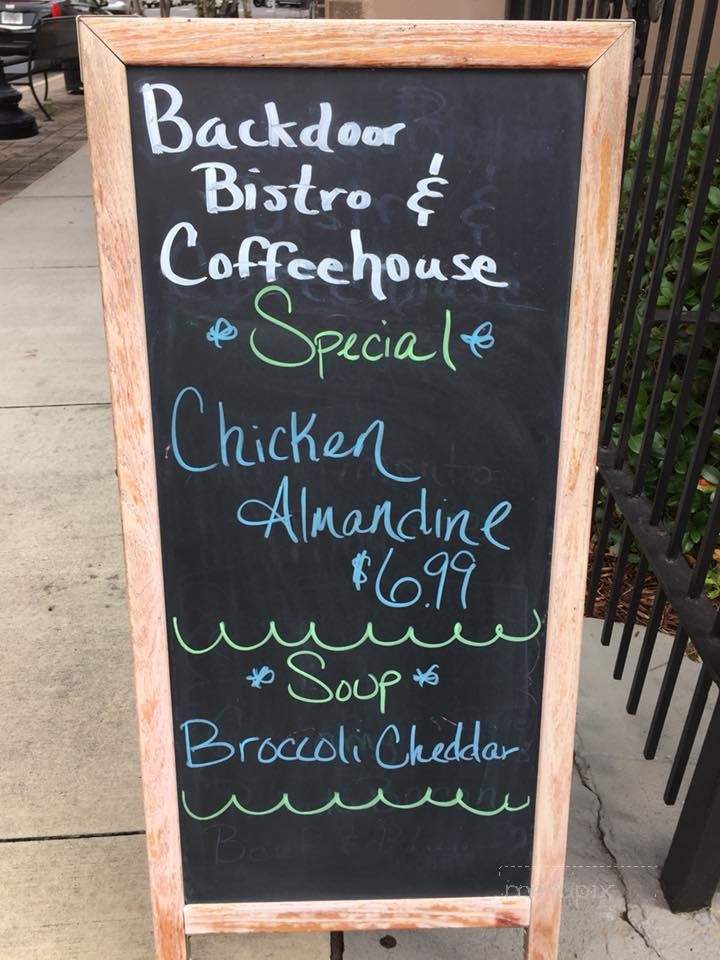 Backdoor
Bistro &
Coffeehouse
Special
Chicken
Almandine
$6.99
Soup
Broccoli Cheddar
menupix